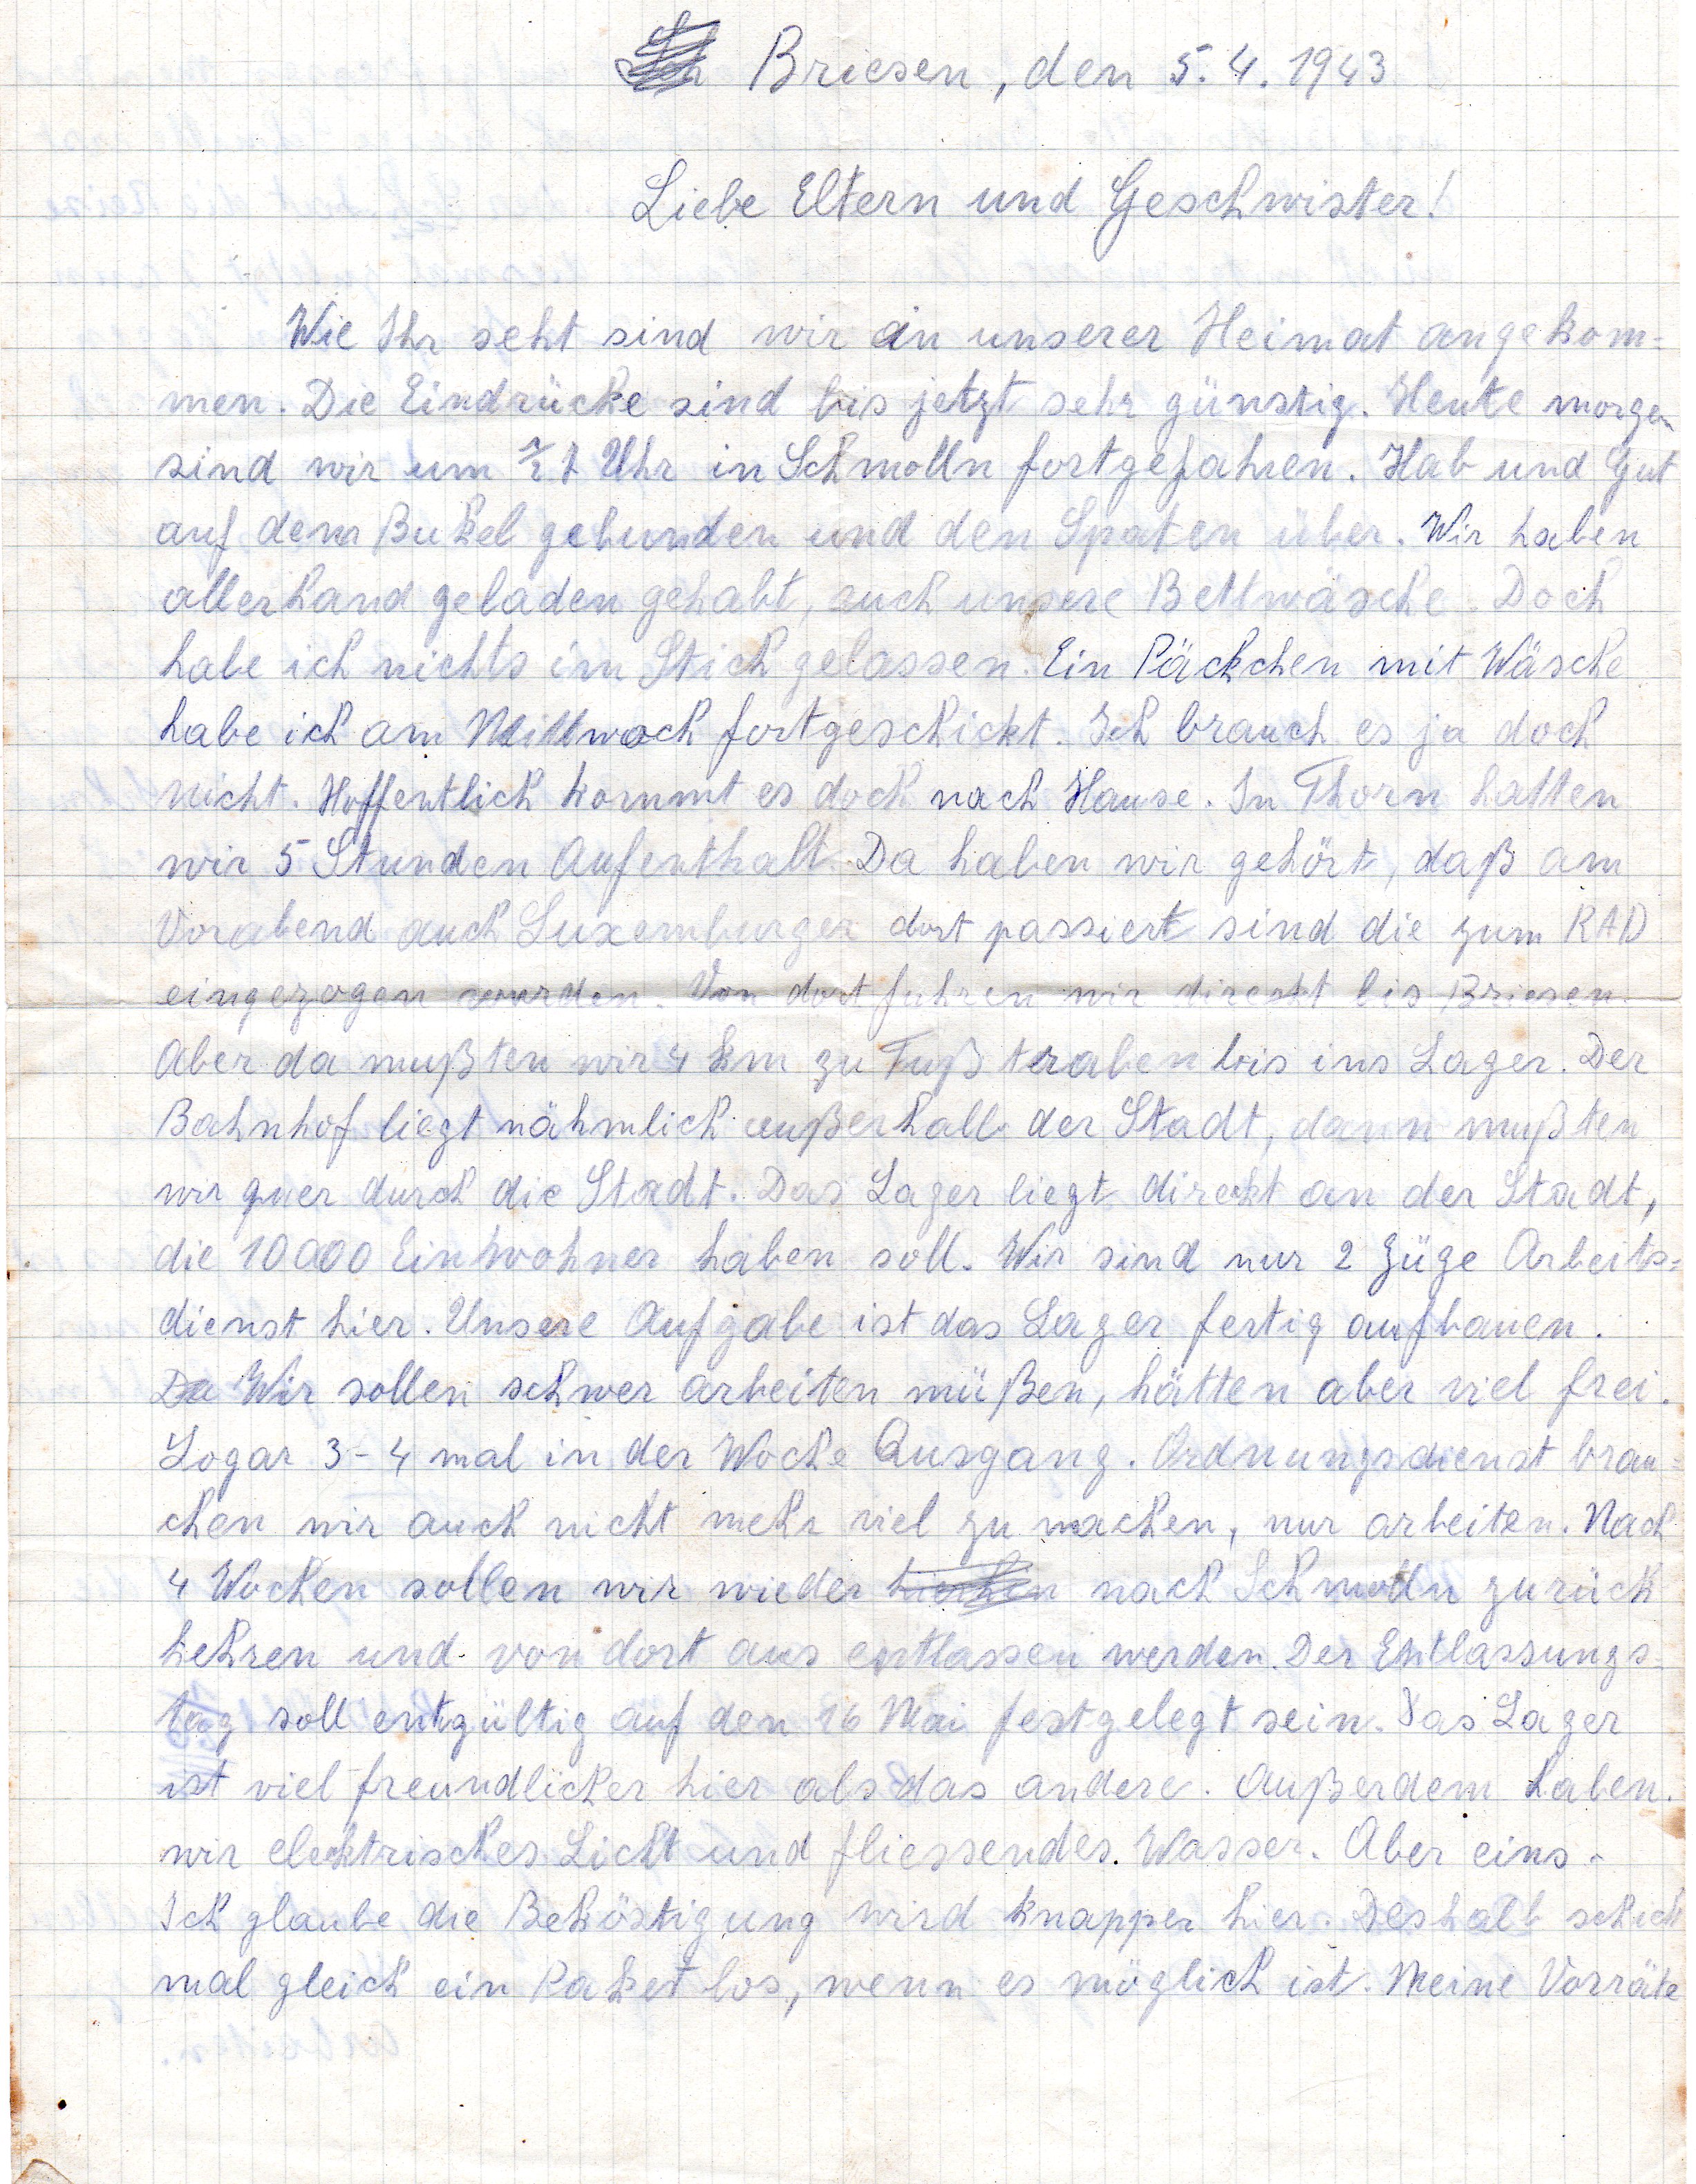 Briesen, den 5.4.1943
Liebe Eltern und Geschwister!
Wie Ihr seht sind wir in unserer Heimat angekom=
men. Die Eindrücke sind bis jetzt sehr günstig. Heute morgen
sind wir um Uhr in Schmolln fortgefahren. Hab und Gut
auf dem Bukel gebunden und den Spaten über. Wir haben
allerhand geladen gehabt, auch unsere Bettwäsche. Doch
habe ich nichts im Stich gelassen. Ein Päckchen mit Wäsche
habe ich am Mittwoch fortgeschickt. Ich brauch es ja doch
nicht. Hoffentlich kommt es doch nach Hause. In Thorn hatten
wir 5 Stunden Aufenthalt. Da haben wir gehört, daß am
Vorabend auch Luxemburger dort passiert sind die zum RAD
eingezogen wurden. Von dort fuhren wir direkt bis Briesen.
Aber da mußten wir 4 km zu Fuß traben bis ins Lager. Der
Bahnhof liegt nähmlich außerhalb der Stadt, dann mußten
wir quer durch die Stadt. Das Lager liegt direkt an der Stadt,
die 10000 Einwohner haben soll. Wir sind nur 2 Züge Arbeits=
dienst hier. Unsere Aufgabe ist das Lager fertig aufbauen.
Da Wir sollen schwer arbeiten müßen, hätten aber viel frei.
Sogar 3-4 mal in der Woche Ausgang. Ordnungsdienst brau=
chen wir auch nicht mehr viel zu machen, nur arbeiten. Nach
4 Wochen sollen wir wieder nach Schmolln zurück
kehren und von dort aus entlassen werden. Der Entlassungs-
tag soll entgültig auf den 16 Mai festgelegt sein. Das Lager
ist viel freundlicher hier als das andere. Außerdem haben
wir elektrisches Licht und fliessendes Wasser. Aber eins.
Ich glaube die Beköstigung wird knapper hier. Deshalb schickt
mal gleich ein Paket los, wenn es möglich ist. Meine Vorräte